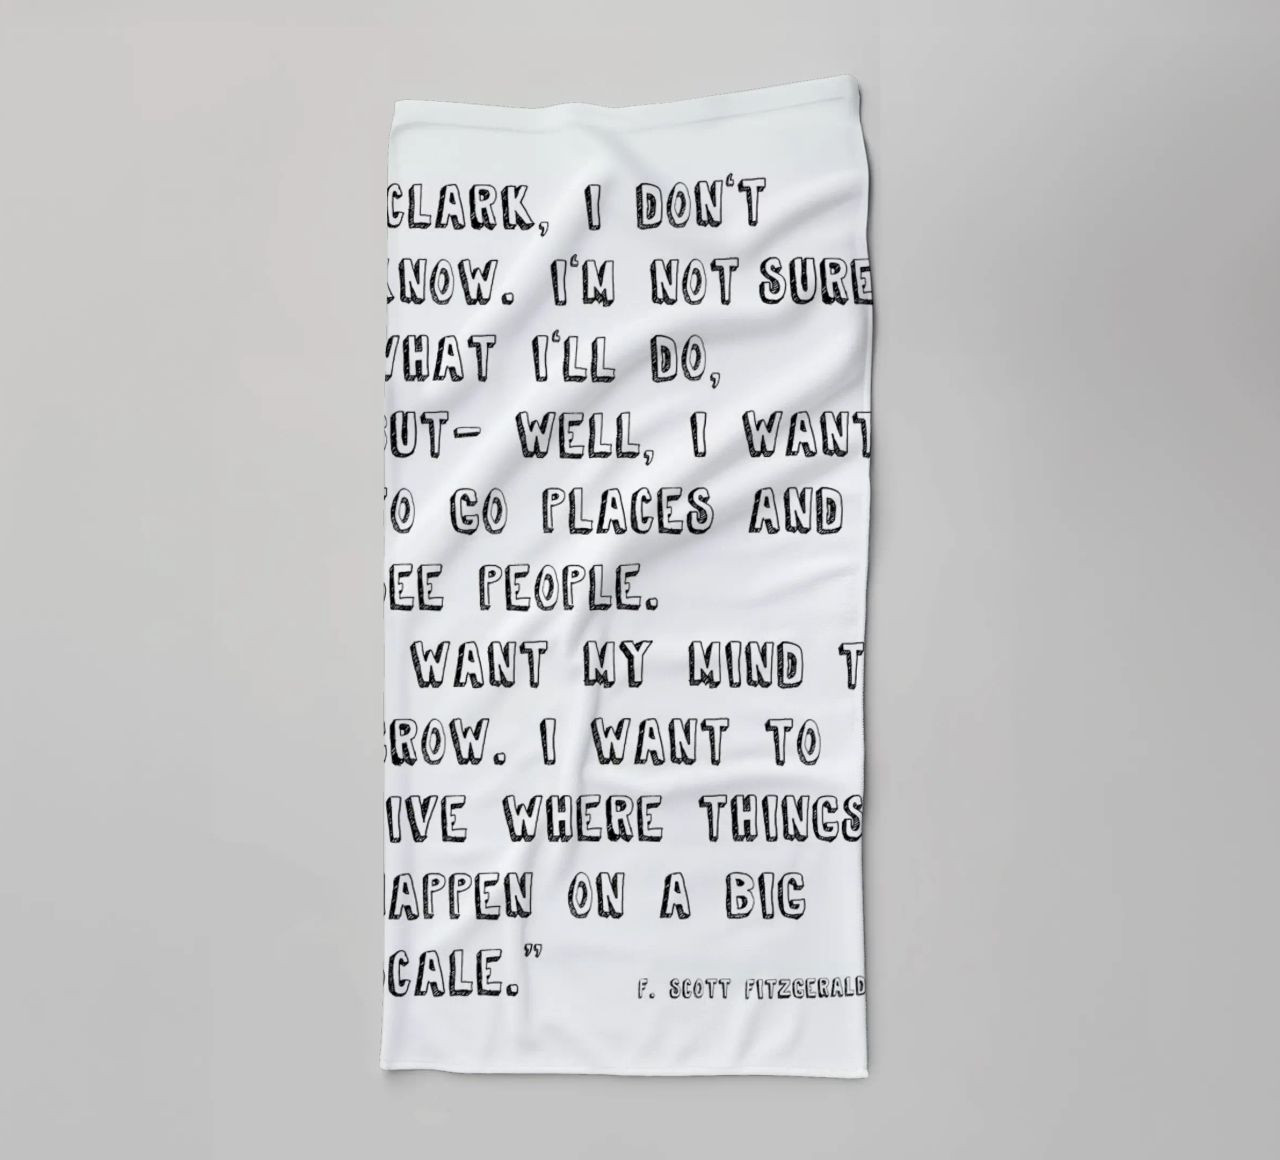 CLARK, I DON'T
KNOW. I'M NOT SURE
WHAT I'LL DO,
BUT- WELL, I WANT
TO GO PLACES AND
SEE PEOPLE.
WANT MY MIND T
GROW. I WANT TO
LIVE WHERE THINGS
HAPPEN ON A BIG
SCALE."
F. SCOTT FITZGERALD